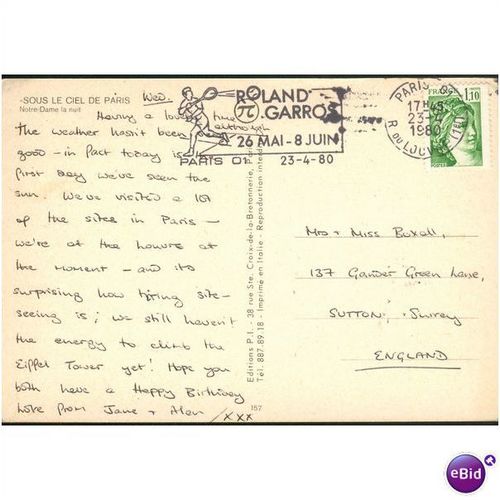 -SOUS LE CIEL DE PARIS
Notre-Dame la nuit
Wed.
Having a lovely time
although
the weather hasn't been
good - in fact today is
first day we've seen the
sun. We've visited a lot
of the sites in Paris -
we're at the
the moment - and its
surprising how tiring site-
seeing is; we still haven't
the energy to climb the
Eiffel Tower yet! Hope you
both have a Happy Birthday
Love from Jane + Alan /xxx
ROLAND
GARROS
26 MAI - 8 JUIN
PARIS 01 23-4-80
PARIS
17H45
23-4
1980
R. DU LOUVRE (1er)
FRANCE
1,10
POSTES
Editions P.I. - 38 rue Ste. Croix-de-la-Bretonnerie,
Tél. 887.89.18 - Imprimé en Italie - Reproduction
157
Mrs + Miss Boxall,
137 Gander Green Lane,
SUTTON Surrey
ENGLAND
eBid